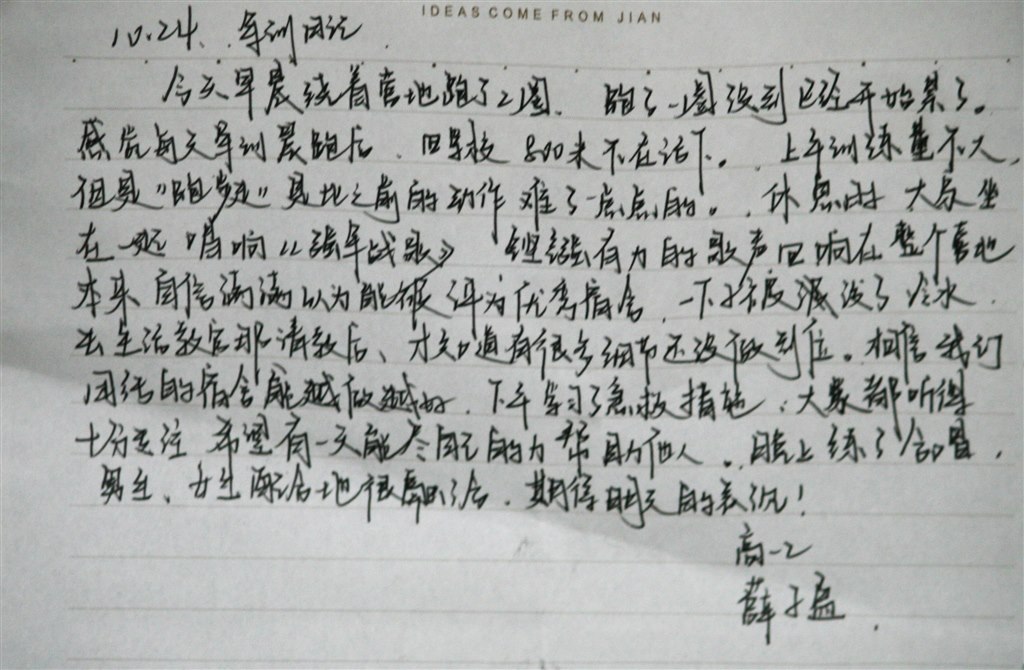 IDEAS COME FROM JIAN
10.24. 军训日记
今天早晨绕着营地跑了2圈、跑了一圈没到已经开始累了。
感觉每天军训晨跑后、回学校800米不在话下。上午训练量不大,
但是"跑步走"是比之前的动作难了一点点的。休息时大家坐
在一起唱响《强军战歌》 有力的歌声回响在整个营地
本来自信满满以为能被评为优秀宿舍、一下子被泼了冷水.
去生活教官那请教后、才知道有很多细节还没做到位。相信我们
团结的宿舍能越做越好、下午学习了急救措施,大家都听得
十分专注 希望有一天能尽自己的力帮助他人。晚上练了合唱,
男生、女生配合地很融洽、期待明天的表现!
高一2
薛子孟